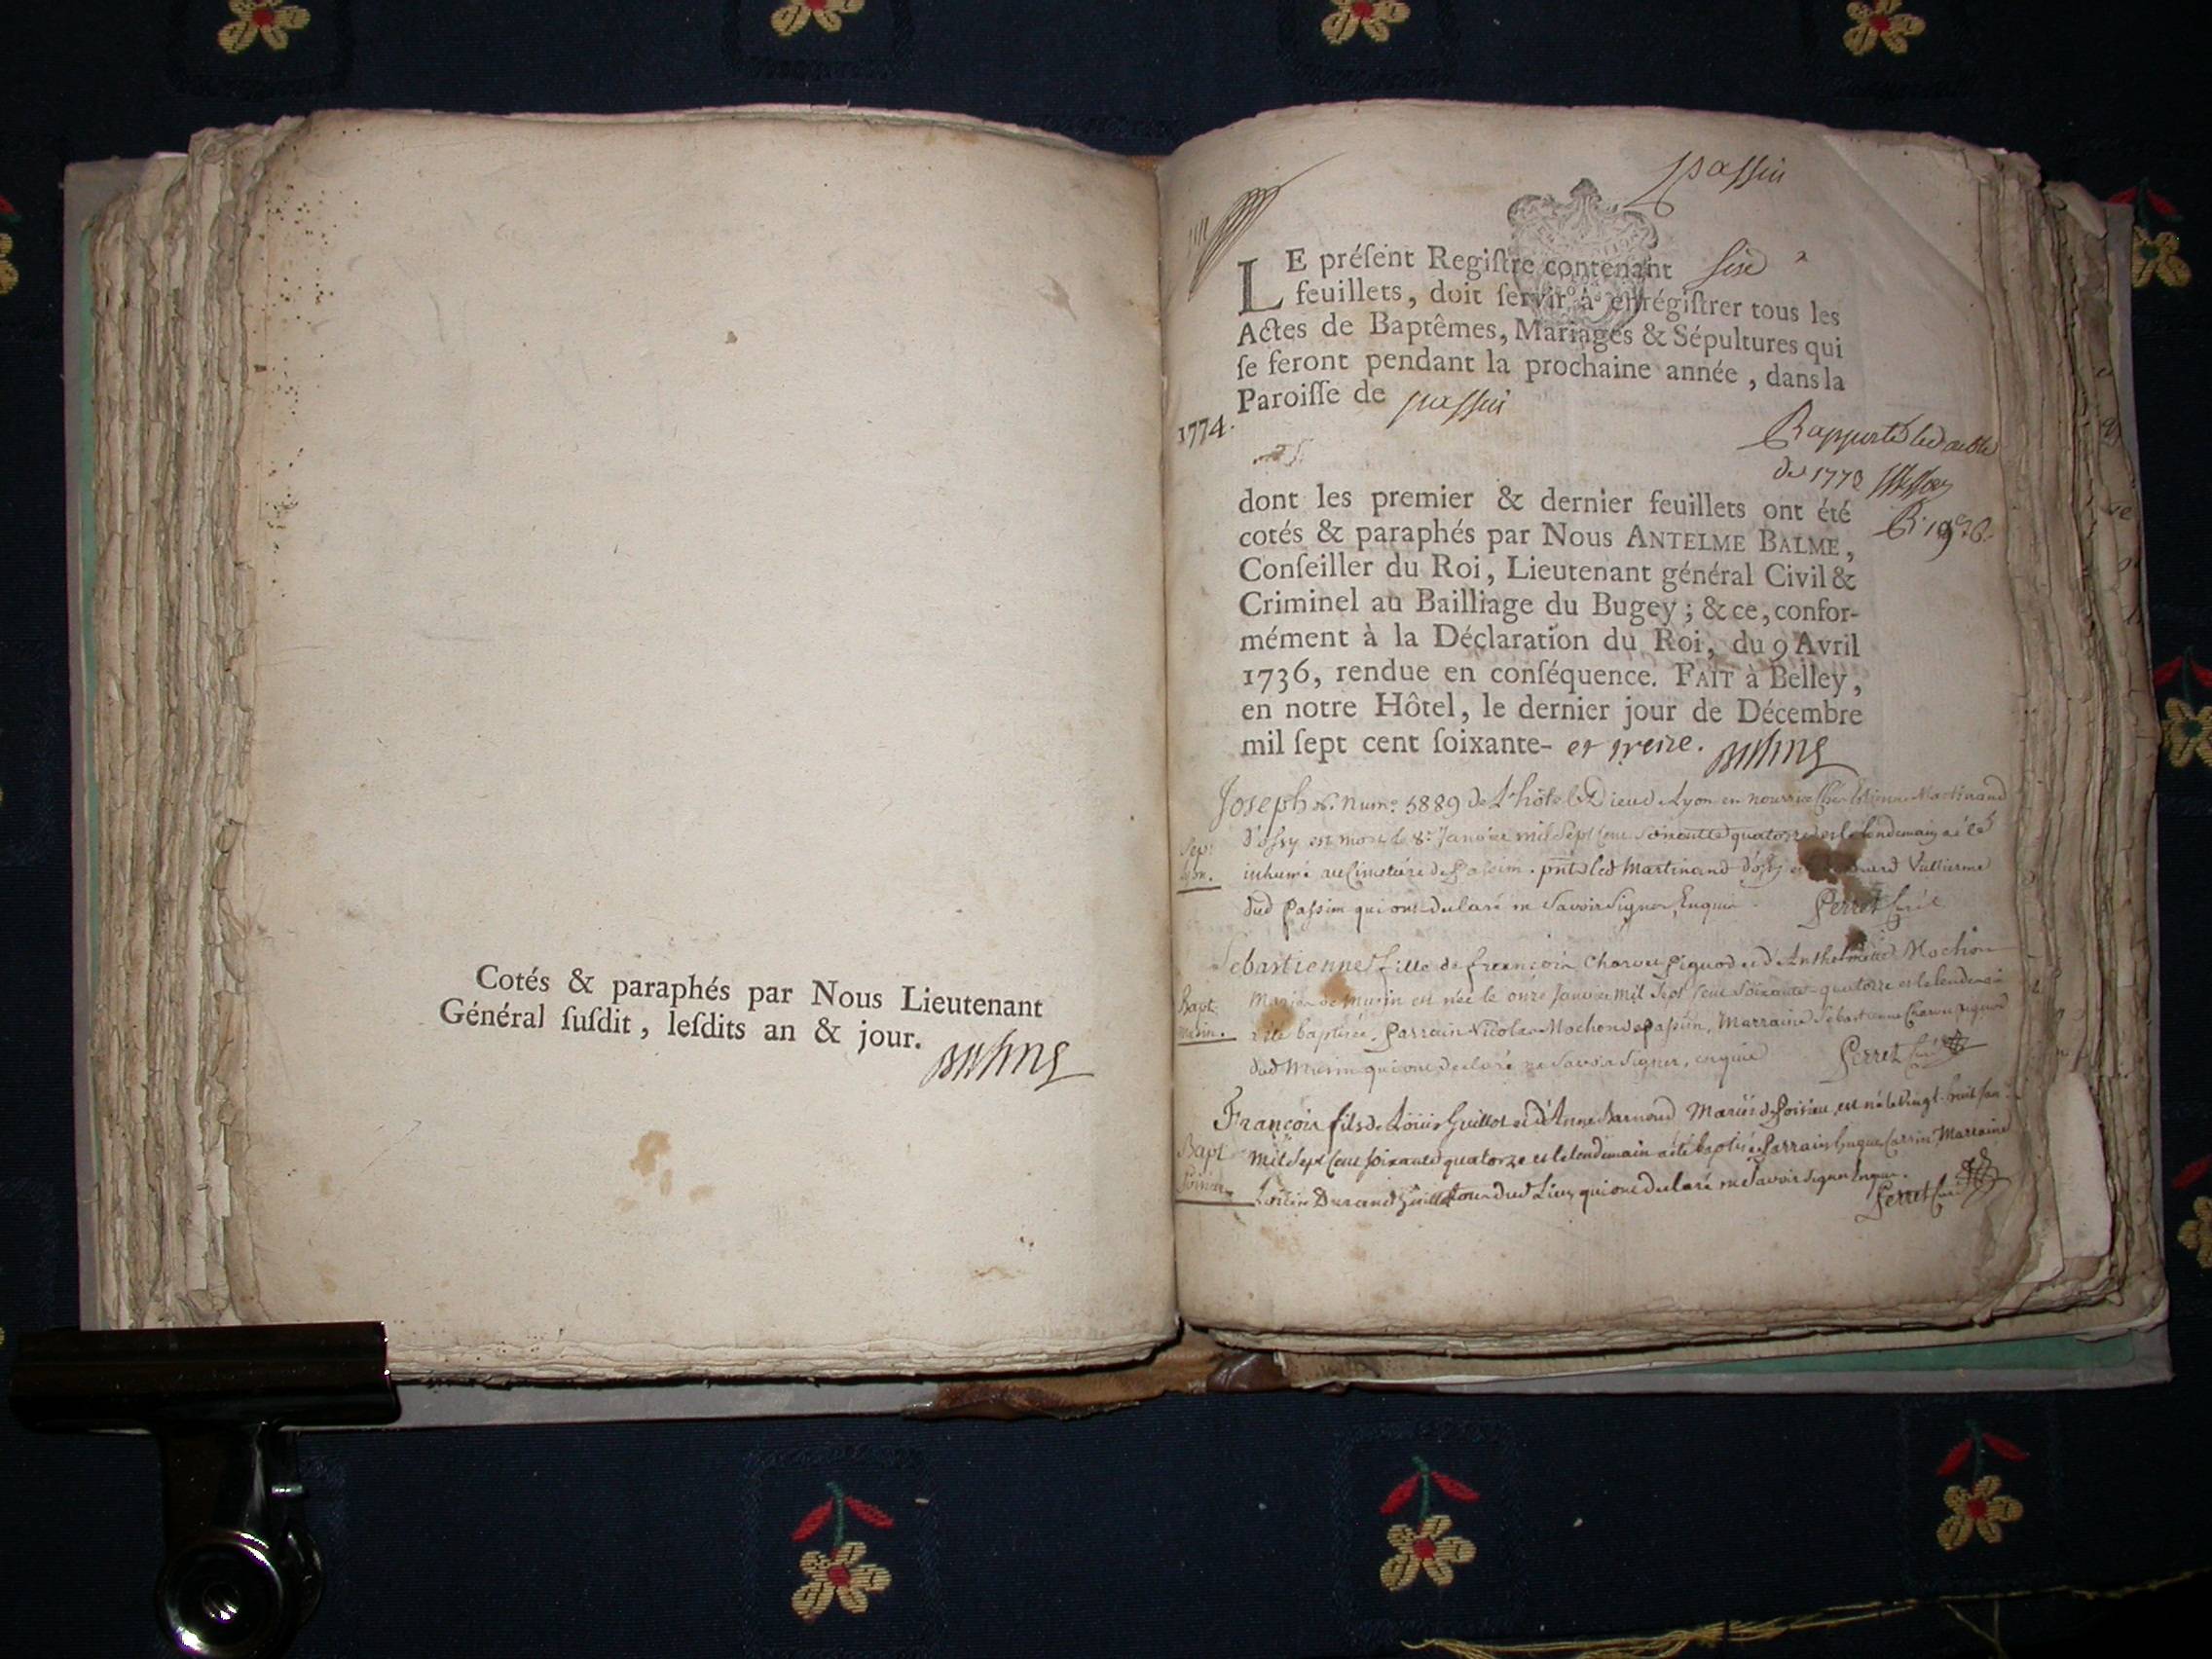 Cotés & paraphés par Nous Lieutenant
Général ſuſdit, leſdits an & jour.
passin
LE préſent Regiſtre contenant sise
feuillets, doit ſervir à enrégiſtrer tous les
Actes de Baptêmes, Mariages & Sépultures qui
ſe feront pendant la prochaine année, dans la
Paroiſſe de passin
1774.
Rapporté led. double
de 1773
dont les premier & dernier feuillets ont été
cotés & paraphés par Nous ANTELME BALME,
Conſeiller du Roi, Lieutenant général Civil &
Criminel au Bailliage du Bugey; & ce, confor-
mément à la Déclaration du Roi, du 9 Avril
1736, rendue en conſéquence. FAIT à Belley,
en notre Hôtel, le dernier jour de Décembre
mil ſept cent ſoixante- et treize.
Joseph num° 5889 de L'hôtel Dieu de Lyon en nourrice Chez Etienne Martinand
d'ossy est mort le 8e Janvier mil Sept Cent Soixante quatorze et le lendemain a été
inhumé au Cimetière de Passin. pnts led Martinand d'ossy et Vullierme
dud Passin qui ont déclaré ne Savoir Signer Enquis. Perret Curé
Sep:
Sebastienne fille de françois Charvet Piguod et d'Anthelmette Mochon
Mariés de musin est née le onze Janvier Mil Sept Cent Soixante-quatorze et le lendemain
a été baptisée. Parrain Nicolas Mochon de passin, Marraine Sebastienne Charvet piguod
dud Musin qui ont declaré ne Savoir Signer, enquis Perret Curé
Bapt.
musin.
François fils de Loüis Guillot et d'Anne Barnoud Mariés de Poisieu, est né le Vingt-huit Jan.
Mil Sept Cent Soixante quatorze et le lendemain a été baptisé Parrain hugue Marraine
Durand Guillot tous dud Lieu, qui ont declaré ne Savoir Signer Enquis.
Perret Curé
Bapt